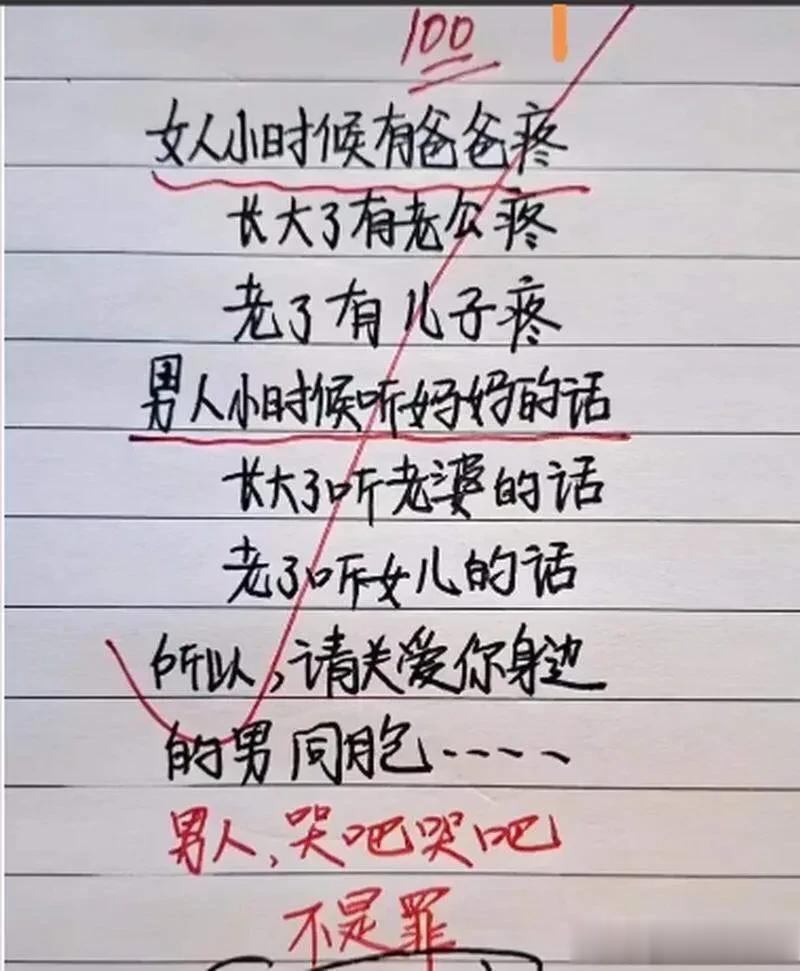 100
女人小时候有爸爸疼
长大了有老公疼
老了有儿子疼
男人小时候听妈妈的话
长大了听老婆的话
老了听女儿的话
所以,请关爱你身边
的男同胞----
男人,哭吧哭吧
不是罪